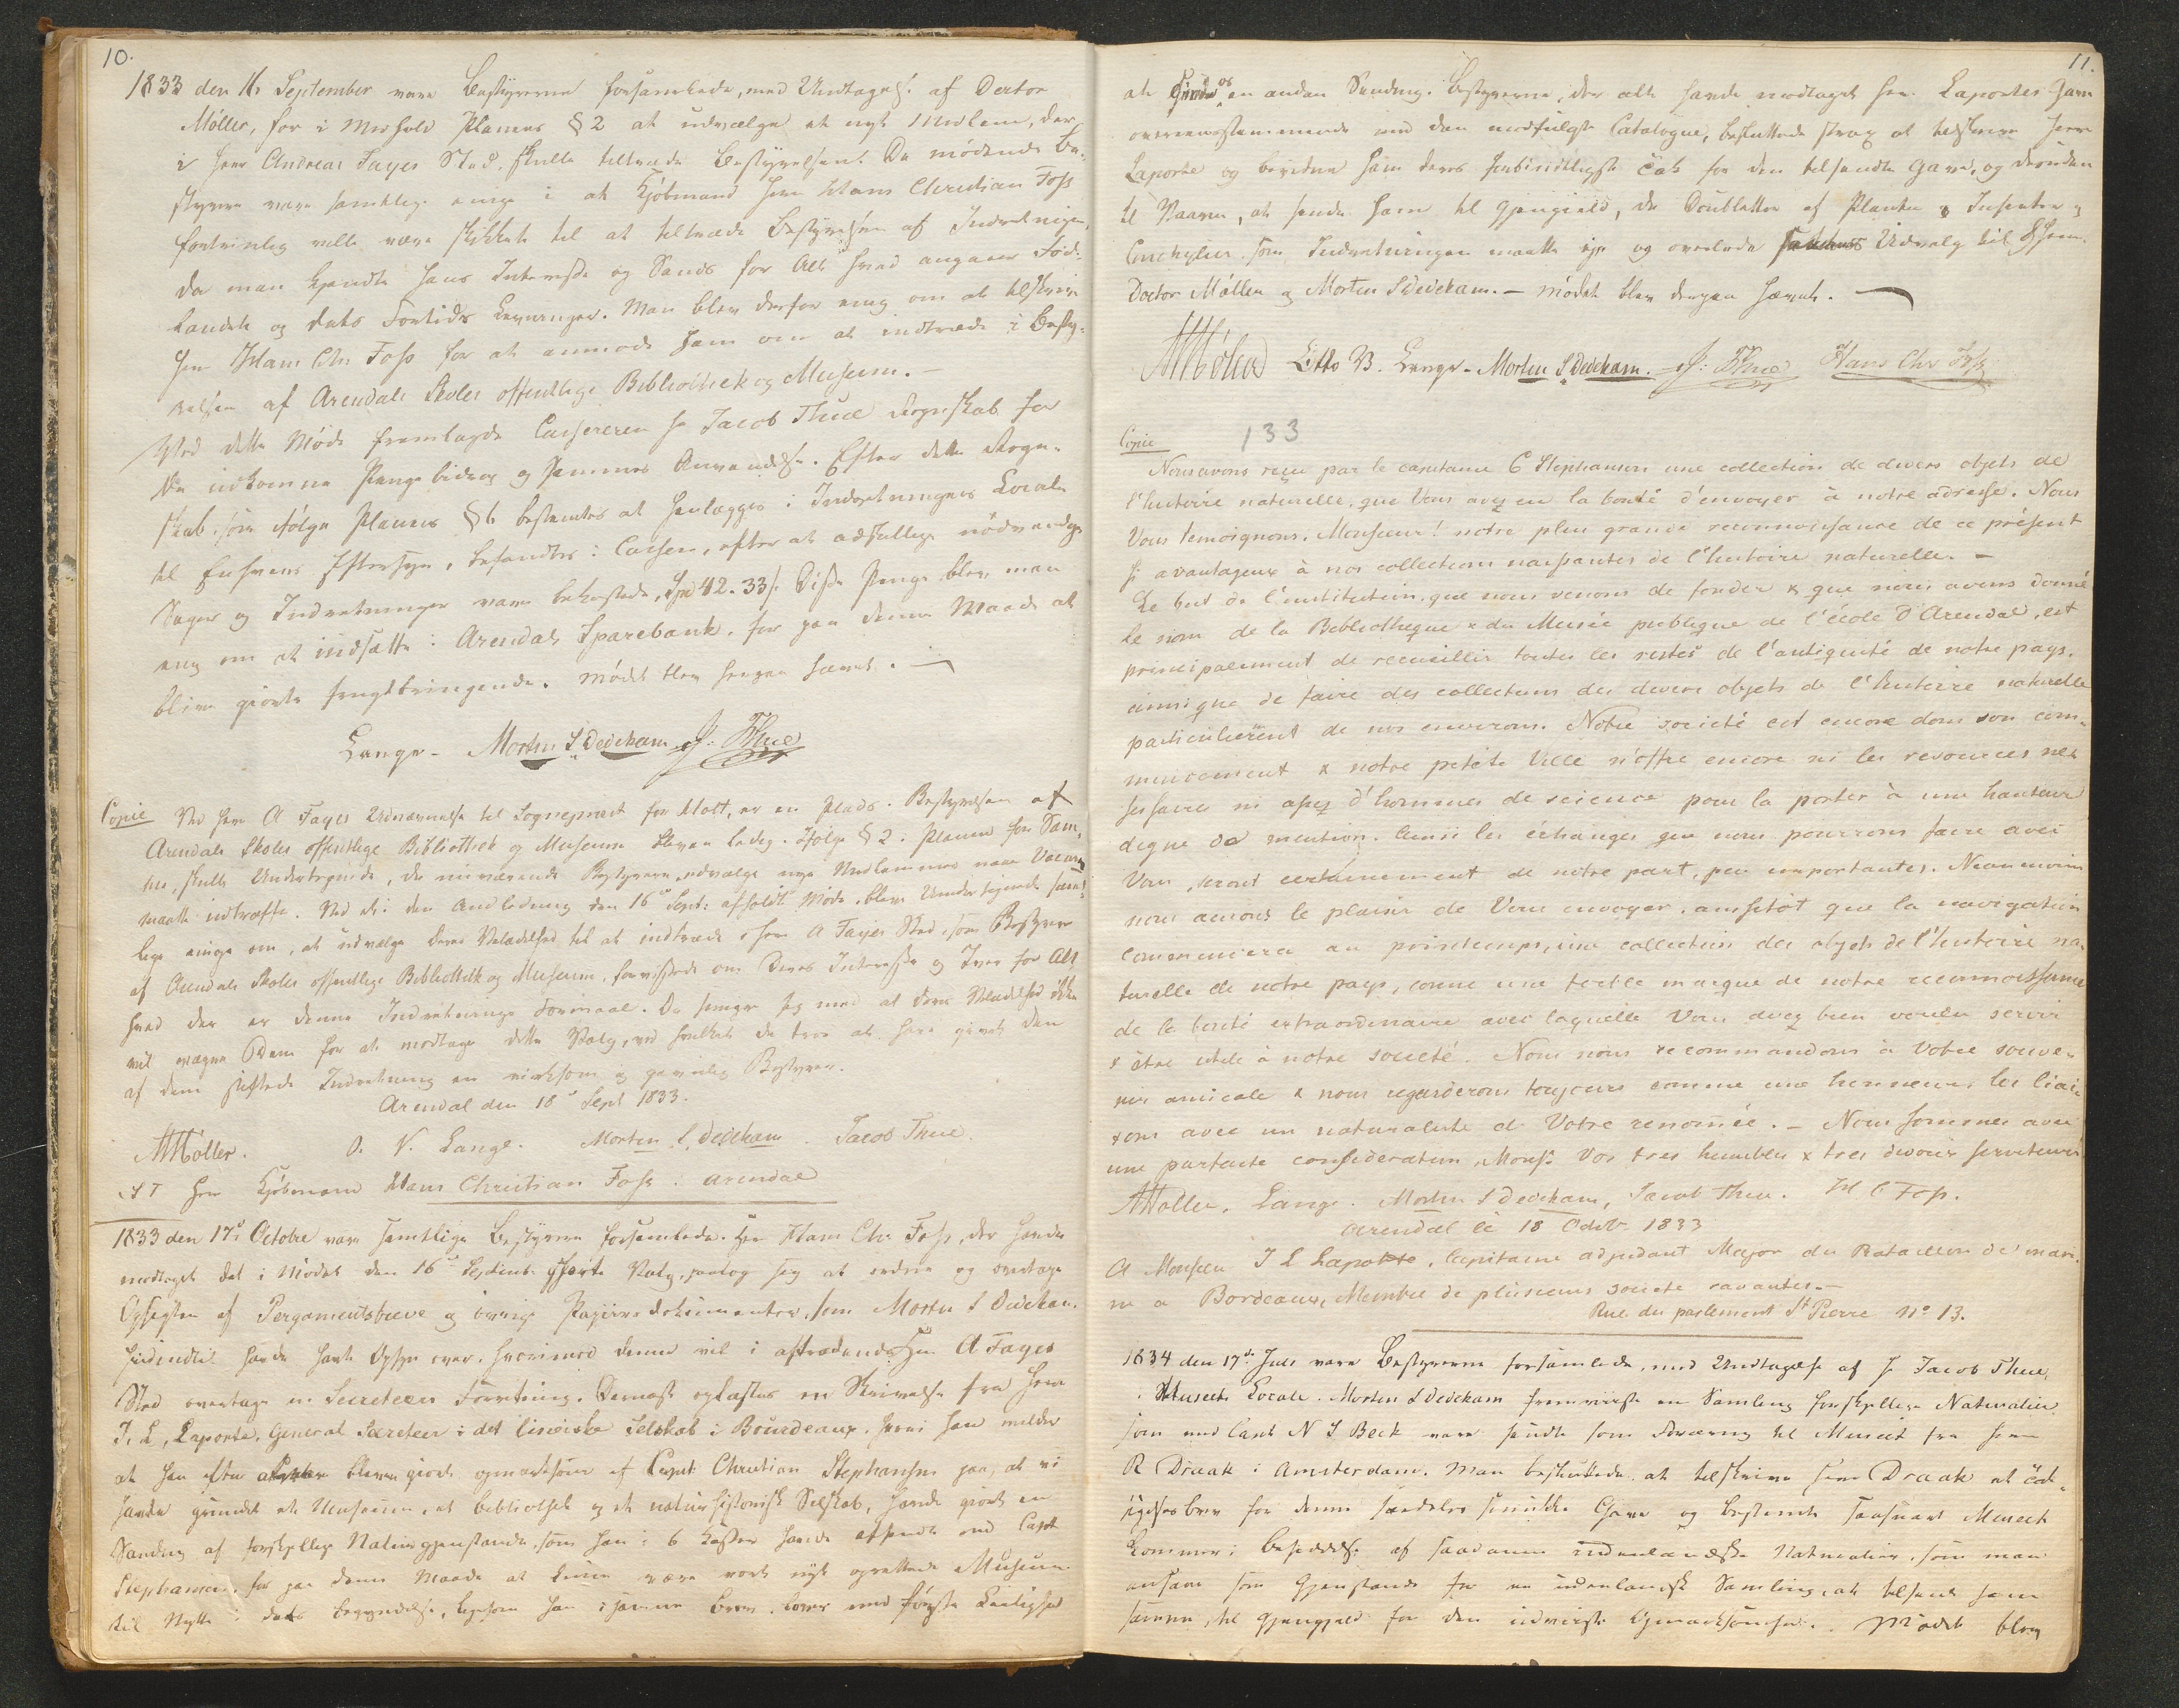 10.
1833 den 16 September vare Bestyrerne forsamlede, med Undtagelse af Doctor
Møller, for i Medhold Planens § 2 at udvælge et nyt Medlem, der
i Herr Andreas Fayes Sted, skulle tiltræde Bestyrelsen. De mødende Be-
styrere vare samtlige enige i at Kjøbmand Herr Hans Christian Foss
fortrinlig ville være skikket til at tiltræde Bestyrelsen af Indretningen,
da man kjendte hans Interesse og Sands for Alt hvad angaaer Føde-
landet og dets Fortids Levninger. Man blev derfor enig om at tilskrive
Herr Hans Chr. Foss for at anmode ham om at indtræde i Besty-
relsen af Arendals Skoles offentlige Bibliothek og Museum. —
Ved dette Møde fremlagde Cassereren Hr Jacob Thue Regnskab for
de indkomne Pengebidrag og sammes Anvendelse. Efter dette Regn-
skab, som ifølge Planens § 6 bestemtes at henlægges i Indretningens Locale
til Enhvers Eftersyn, befandtes i Cassen, efter at adskillige nødvendige
Sager og Indretninger vare bekostede, Spd 42. 33 ß. Disse Penge blev man
enig om at indsætte i Arendals Sparebank, for paa denne Maade at
blive giorte frugtbringende. Mødet blev herpaa hævet. —
Lange - Morten S Dedekam J. Thue
Copie Ved Herr A Fayes Udnævnelse til Sognepræst for Holt, er en Plads i Bestyrelsen af
Arendals Skoles offentlige Bibliothek og Museum bleven ledig. Ifølge § 2 i Planen for Sam-
me, skulle Undertegnede, de nuværende Bestyrere, udvælge nye Medlemmer naar Vacance
maatte indtræffe. Ved et i den Anledning den 16de Sept: afholdt Møde, bleve Undertegnede samt-
lige enige om, at udvælge Deres Velædelhed til at indtræde i Herr A Fayes Sted, som Bestyrer
af Arendals Skoles offentlige Bibliothek og Museum, forvissede om Deres Interesse og Iver for Alt
hvad der er denne Indretnings Formaal. De smigre sig med at Deres Velædelhed ikke
vil vægre Dem for at modtage dette Valg, ved hvilket de troe at have givet den
af dem stiftede Indretning en virksom og gavnlig Bestyrer.
Arendal den 18de Sept 1833.
AMøller. O. V. Lange. Morten S. Dedekam. Jacob Thue.
S T Herr Kjøbmand Hans Christian Foss i Arendal
1833 den 17de Octobre vare samtlige Bestyrere forsamlede. Hr Hans Chr. Foss, der havde
modtaget det i Mødet den 16de Septemb. skeete Valg, paatog sig at ordne og overtage
Opsigten af Pergamentsbreve og øvrige Papirsdokumenter, som Morten S Dedekam
hidindtil havde havt Opsyn over, hvorimod denne vil i aftrædende Hrr A Fayes
Sted overtage en Secreteers Forretning. Dernæst oplæstes en Skrivelse fra Herr
J. L. Laporte, General Secreteer i det lineiske Selskab i Bourdeaux, hvori han melder
at han efter at bleven giort opmærksom af Capt: Christian Stephansen paa, at vi
havde grundet et Museum, et bibliothek og et naturhistorisk Selskab, havde giort en
Samling af forskjellige Naturgjenstande, som han i 6 Kasser havde afsendt med Capt
Stephansen, for paa denne Maade at kunne være vort nyt oprettede Museum
til Nytte i dets begyndelse, ligesom han i samme Brev lover med første Leilighed
11.
at sende os en anden Sending. Bestyrerne, der alt havde modtaget Herr Laportes Gave
overeensstemmende med den medfulgte Catalogue, besluttede strax at tilskrive Herr
Laporte og bevidne ham deres forbindtligste Tak for den tilsendte Gave, og desuden
til Vaaren, at sende ham til Gjengield, de Doubletter af Planter & Insecter og
Conchylier, som Indretningen maatte eje og overlode Udvalg til Herr
Doctor Møller og Morten S Dedekam. — Mødet blev derpaa hævet. —
AMøller Otto V. Lange - Morten S Dedekam. J. Thue Hans Chr Foss
133
Copie
Nous avons reçu par le capitaine C Stephansen une collection de divers objets de
l'histoire naturelle, que Vous avez eu la bonté d'envoyer à notre adresse. Nous
Vous temoignons, Monsieur! notre plus grande reconnoissance de ce présent
si avantageux à nos collections naissantes de l'histoire naturelle. —
Le but de l'institution, que nous venons de fonder & que nous avons donné
le nom de la Bibliotheque & du Musée publique de l'école d'Arendal, est
principalement de recueillir toutes les restes de l'antiquité de notre pays,
ainsi que de faire des collections des divers objets de l'histoire naturelle
particulierent de nos environs. Notre societé est encore dans son com-
mencement & notre petite Ville n'offre encore ni les resources nes-
sessaires ni assez d'hommes de science pour la porter à une hauteur
digne de mention. Ainsi les échanges que nous pourrons faire avec
Vous, seront certainement de notre part, peu importantes. Neanmoins
nous aurons le plaisir de Vous envoyer, aussitôt que la navigation
commencera au printemps, une collection des objets de l'histoire na-
turelle de notre pays, comme une foible marque de notre reconnoissance
de la bonté extraordinaire avec laquelle Vous avez bien voulu servir
& être utile à notre societé. Nous nous recommandons à Votre souve-
nir amicale & nous regarderons toujours comme une honneur, les liai-
sons avec un naturaliste de Votre renomée. — Nous sommes avec
une parfaite consideration, Mons: Vos tres humbles & tres devoués serviteurs
AMøller. Lange. Morten S Dedekam, Jacob Thue. H C Foss.
Arendal le 18 Octobr 1833
A Monsieur J L Laporte, Capitaine adjudant Major du Bataillon de mari-
ne a Bordeaux, Membre de plusieurs societe savantes. —
Rue du parlement St Pierre No 13.
1834 den 17de Juli vare Bestyrerne forsamlede, med Undtagelse af Hr Jacob Thue,
i Museets Locale. Morten S Dedekam fremviiste en Samling forskjellige Naturalier
som med Capt N S Beck vare sendte som Foræring til Museet fra Herr
R Draak i Amsterdam. Man besluttede at tilskrive Herr Draak et Tak-
sigelsesbrev for denne saadeles smukke Gave og bestemte saasnart Museet
kommer i besiddelse af saadanne indenlandske Naturalier, som man
ansaae som Gjenstande for en udenlandsk Samling, at tilsende ham
samme, til Gjengjæld for den udviste Opmærksomhed. Mødet blev